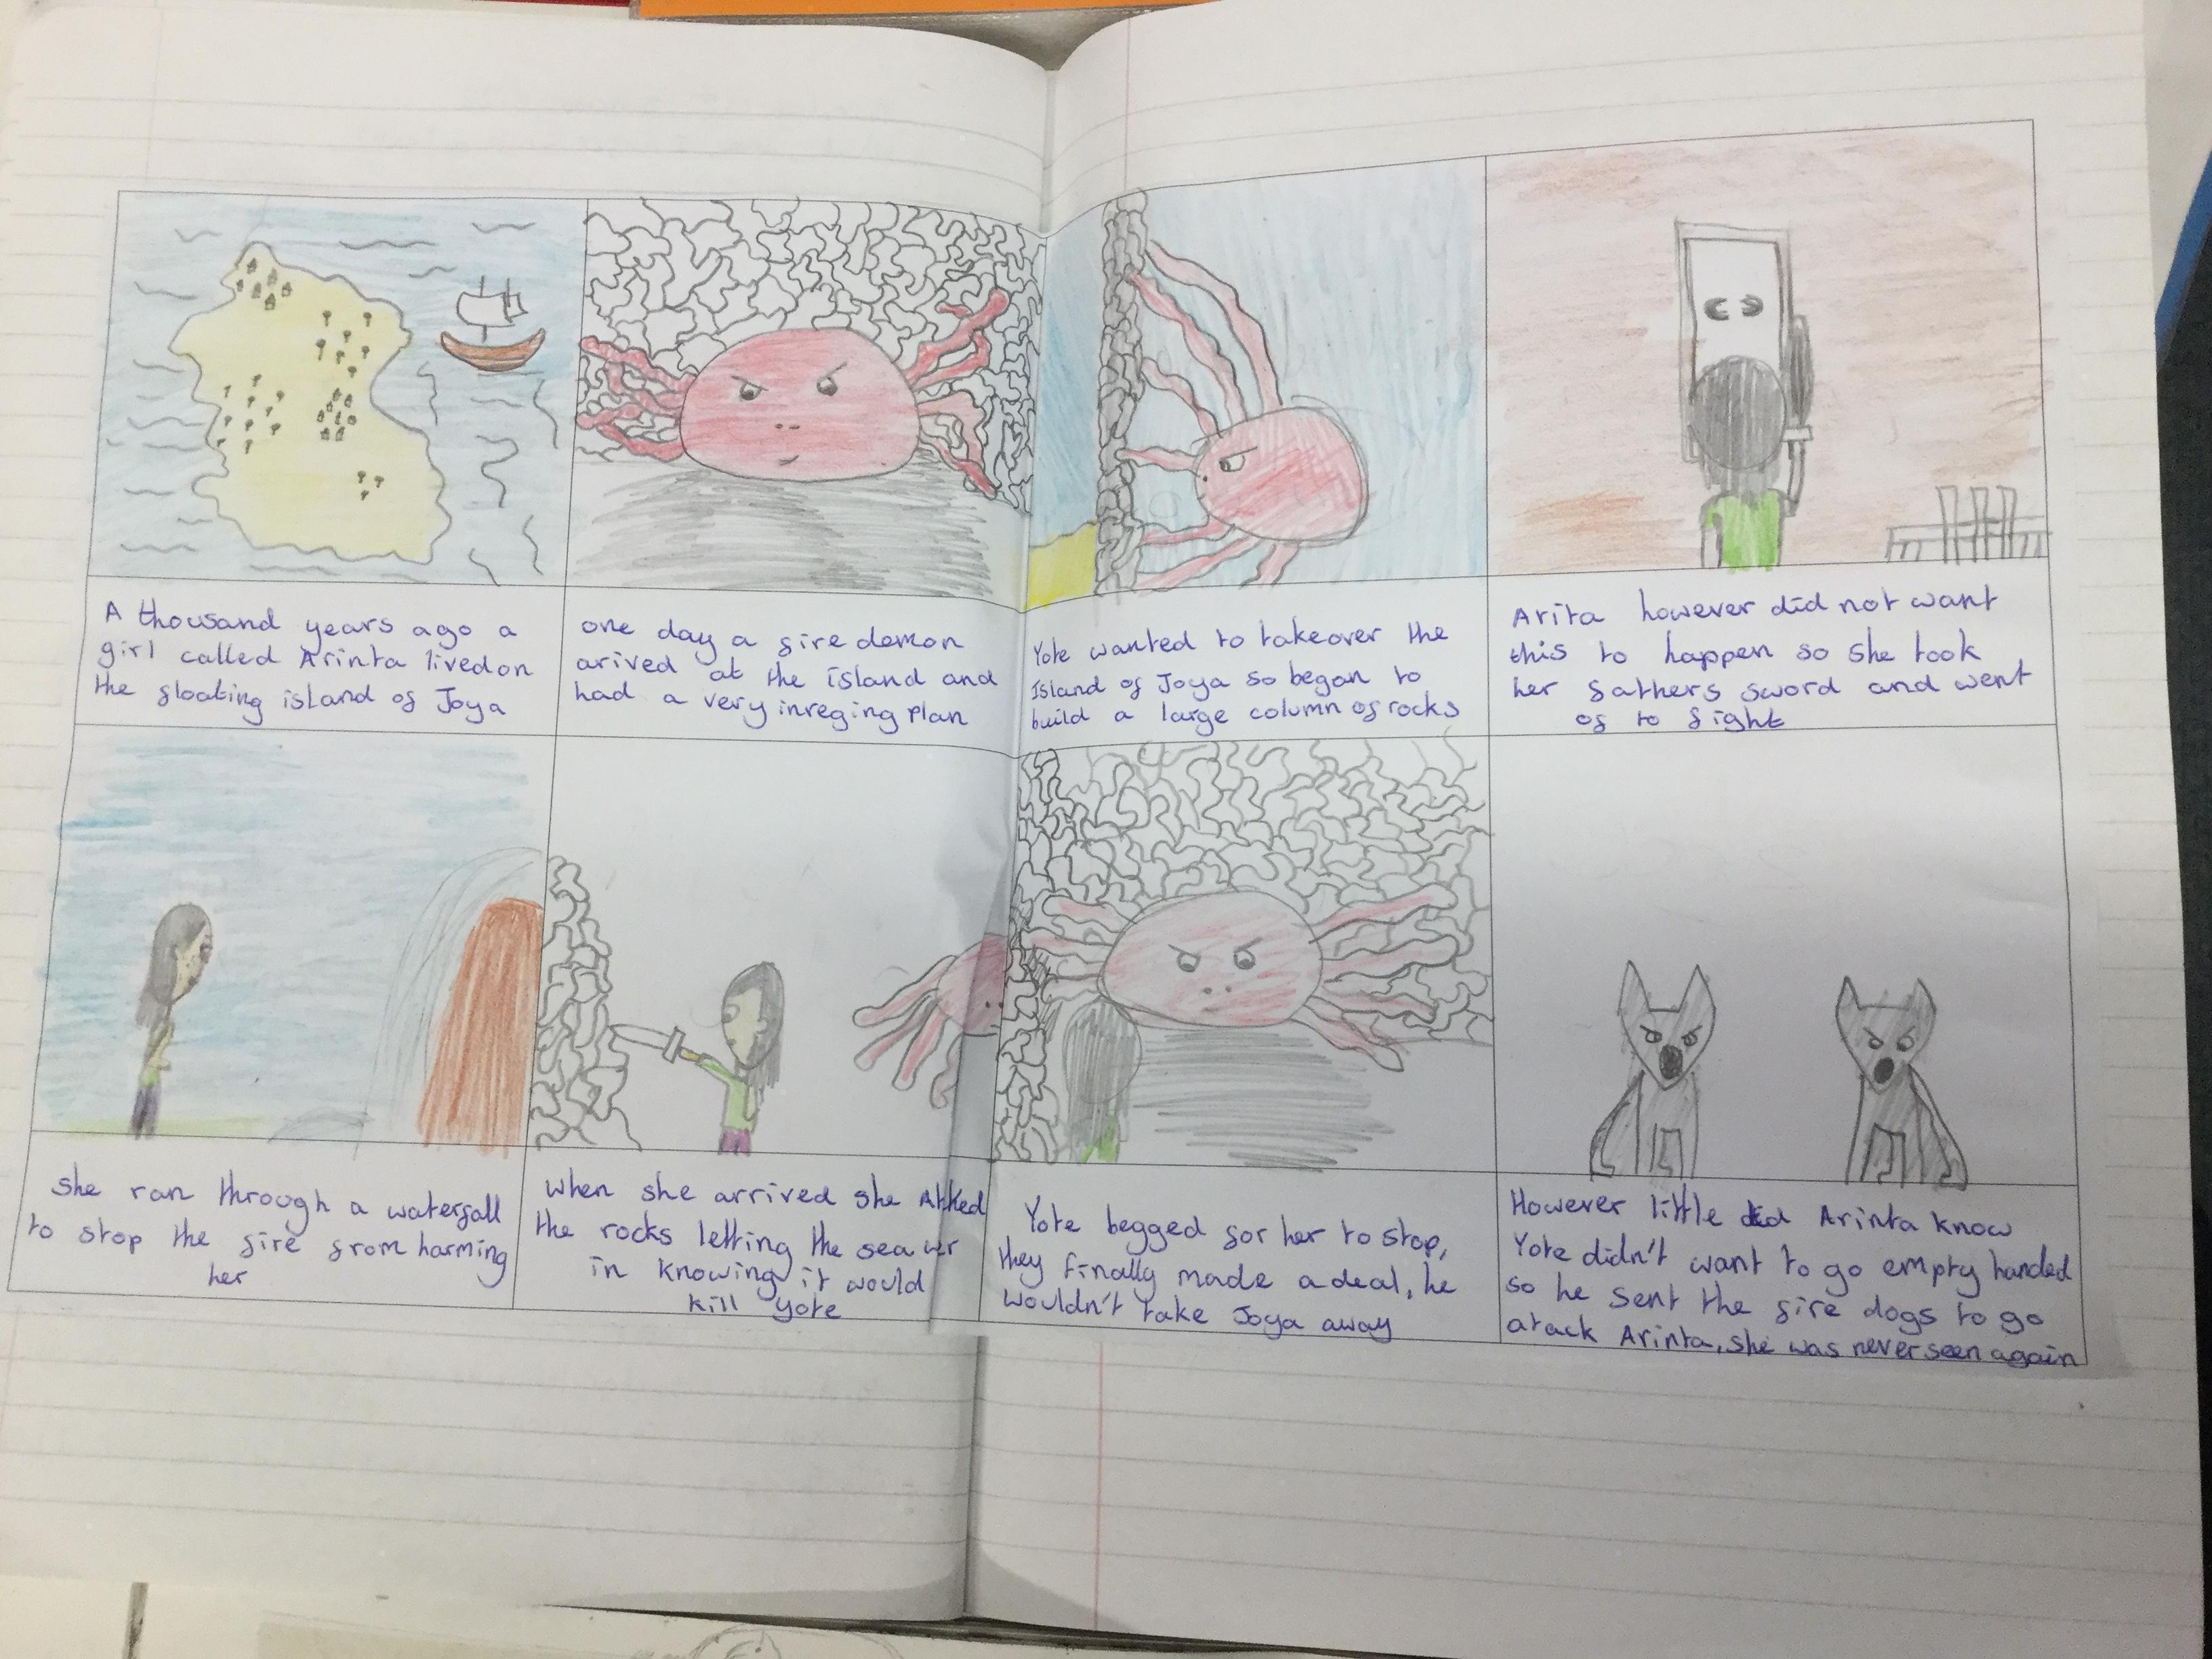 A thousand years ago a
girl called Arinta lived on
the floating island of Joya
one day a fire demon
arived at the island and
had a very inreging plan
Yote wanted to takeover the
Island of Joya so began to
build a large column of rocks
Arita however did not want
this to happen so she took
her fathers sword and went
of to fight
she ran through a waterfall
to stop the fire from harming
her
when she arrived she
the rocks letting the sea
in knowing it would
kill Yote
Yote begged for her to stop,
they finally made a deal, he
wouldn't take Joya away
However little did Arinta know
Yote didn't want to go empty handed
so he sent the fire dogs to go
atack Arinta, she was never seen again